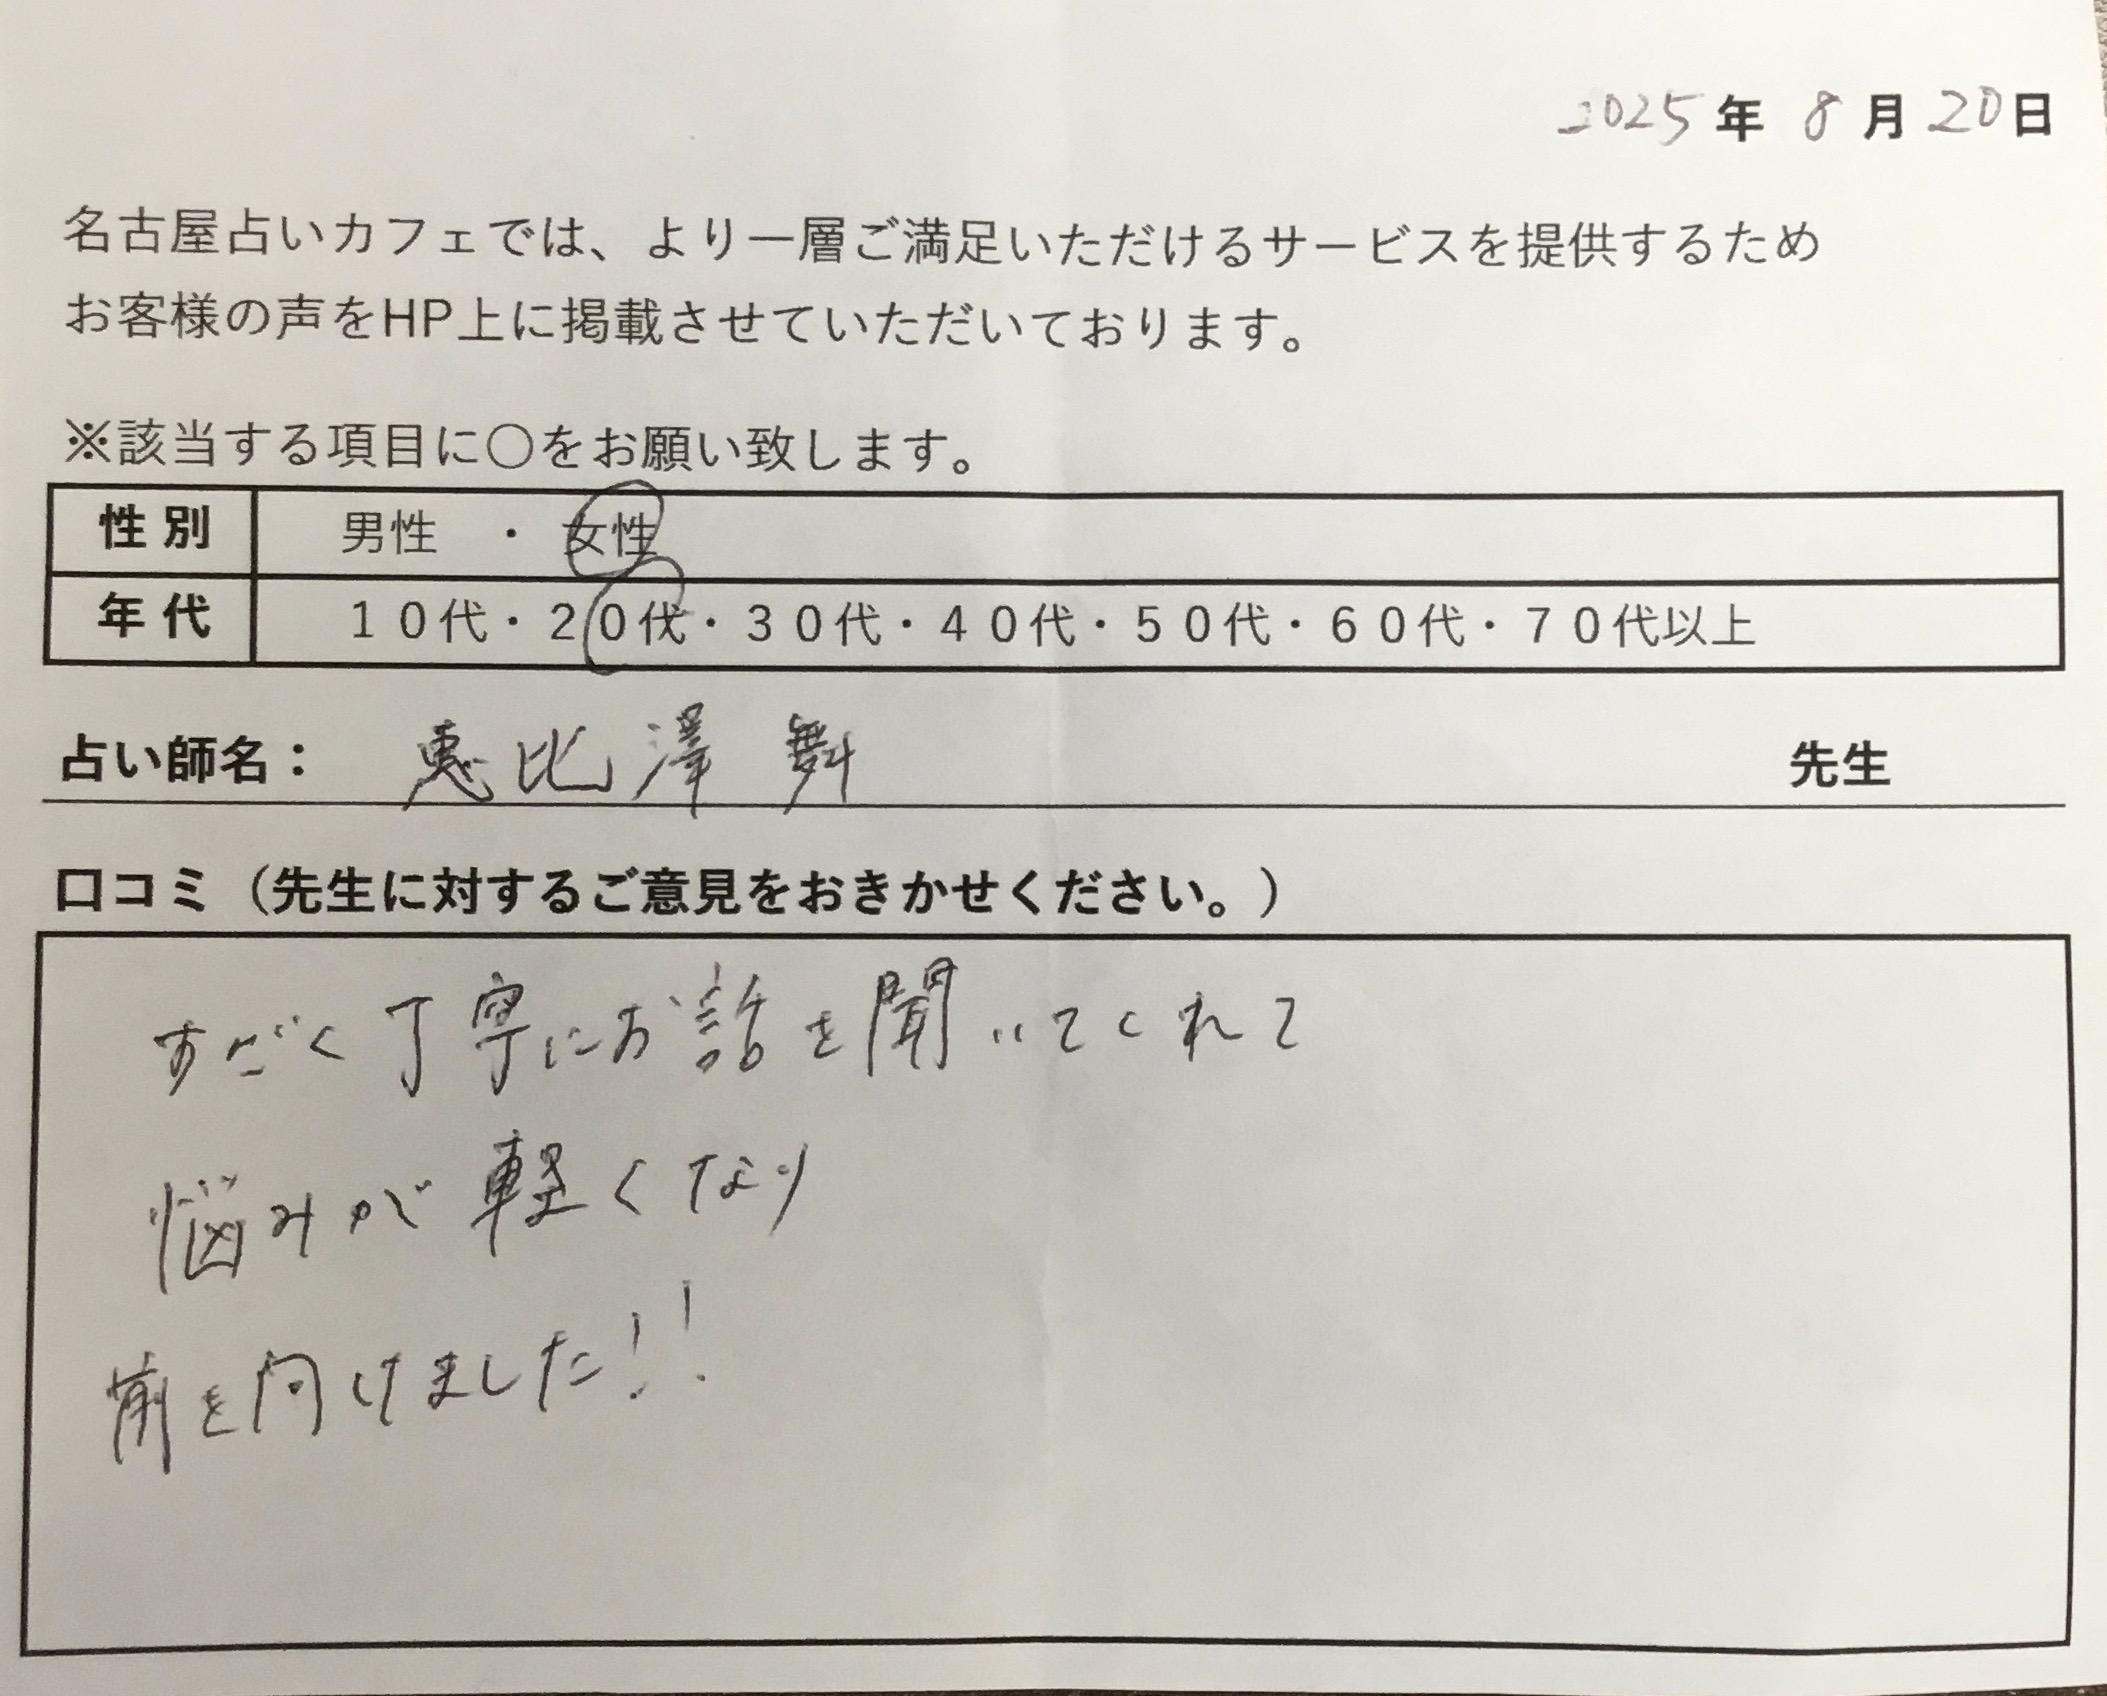 2025年 8月20日
名古屋占いカフェでは、より一層ご満足いただけるサービスを提供するため
お客様の声をHP上に掲載させていただいております。
※該当する項目に〇をお願い致します。
性別 男性 ・ 女性
年代 10代・20代・30代・40代・50代・60代・70代以上
占い師名： 恵比澤 舞 先生
口コミ（先生に対するご意見をおきかせください。）
すごく丁寧にお話を聞いてくれて
悩みが軽くなり
前を向けました!!